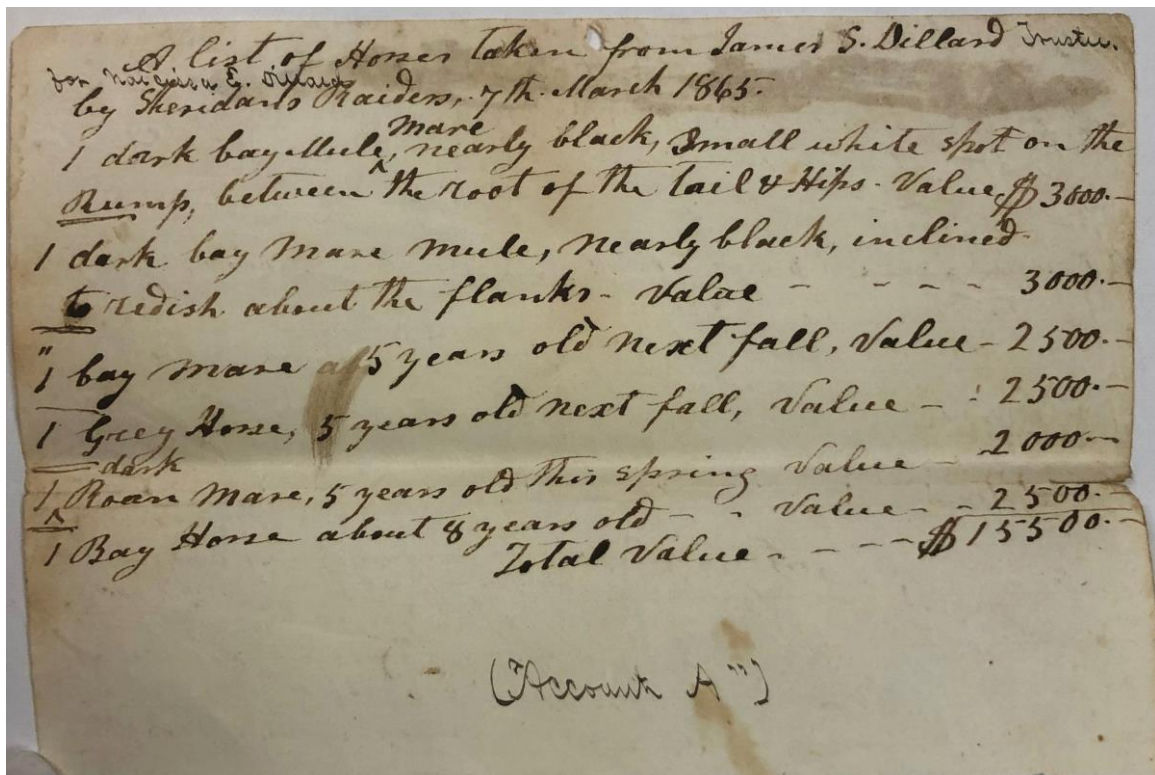 A list of Horses taken from James S. Dillard Trustee.
for Narcissa E. Dillard
by Sheridans Raiders, 7th March 1865.
mare
1 dark bay Mule, ^ nearly black, Small white spot on the
Rump, between the root of the tail & Hips - Value $3000.-
1 dark bay mare mule, nearly black, inclined
to redish about the flanks - Value - - - - 3000.-
" 1 bay mare 5 years old next fall, Value - 2500.-
1 Grey Horse, 5 years old next fall, Value - - 2500.-
dark
1 ^ Roan mare, 5 years old this spring Value - 2000-
1 Bay Horse about 8 years old - - Value - - 2500.-
Total Value - - - - $15500.-
("Account A")